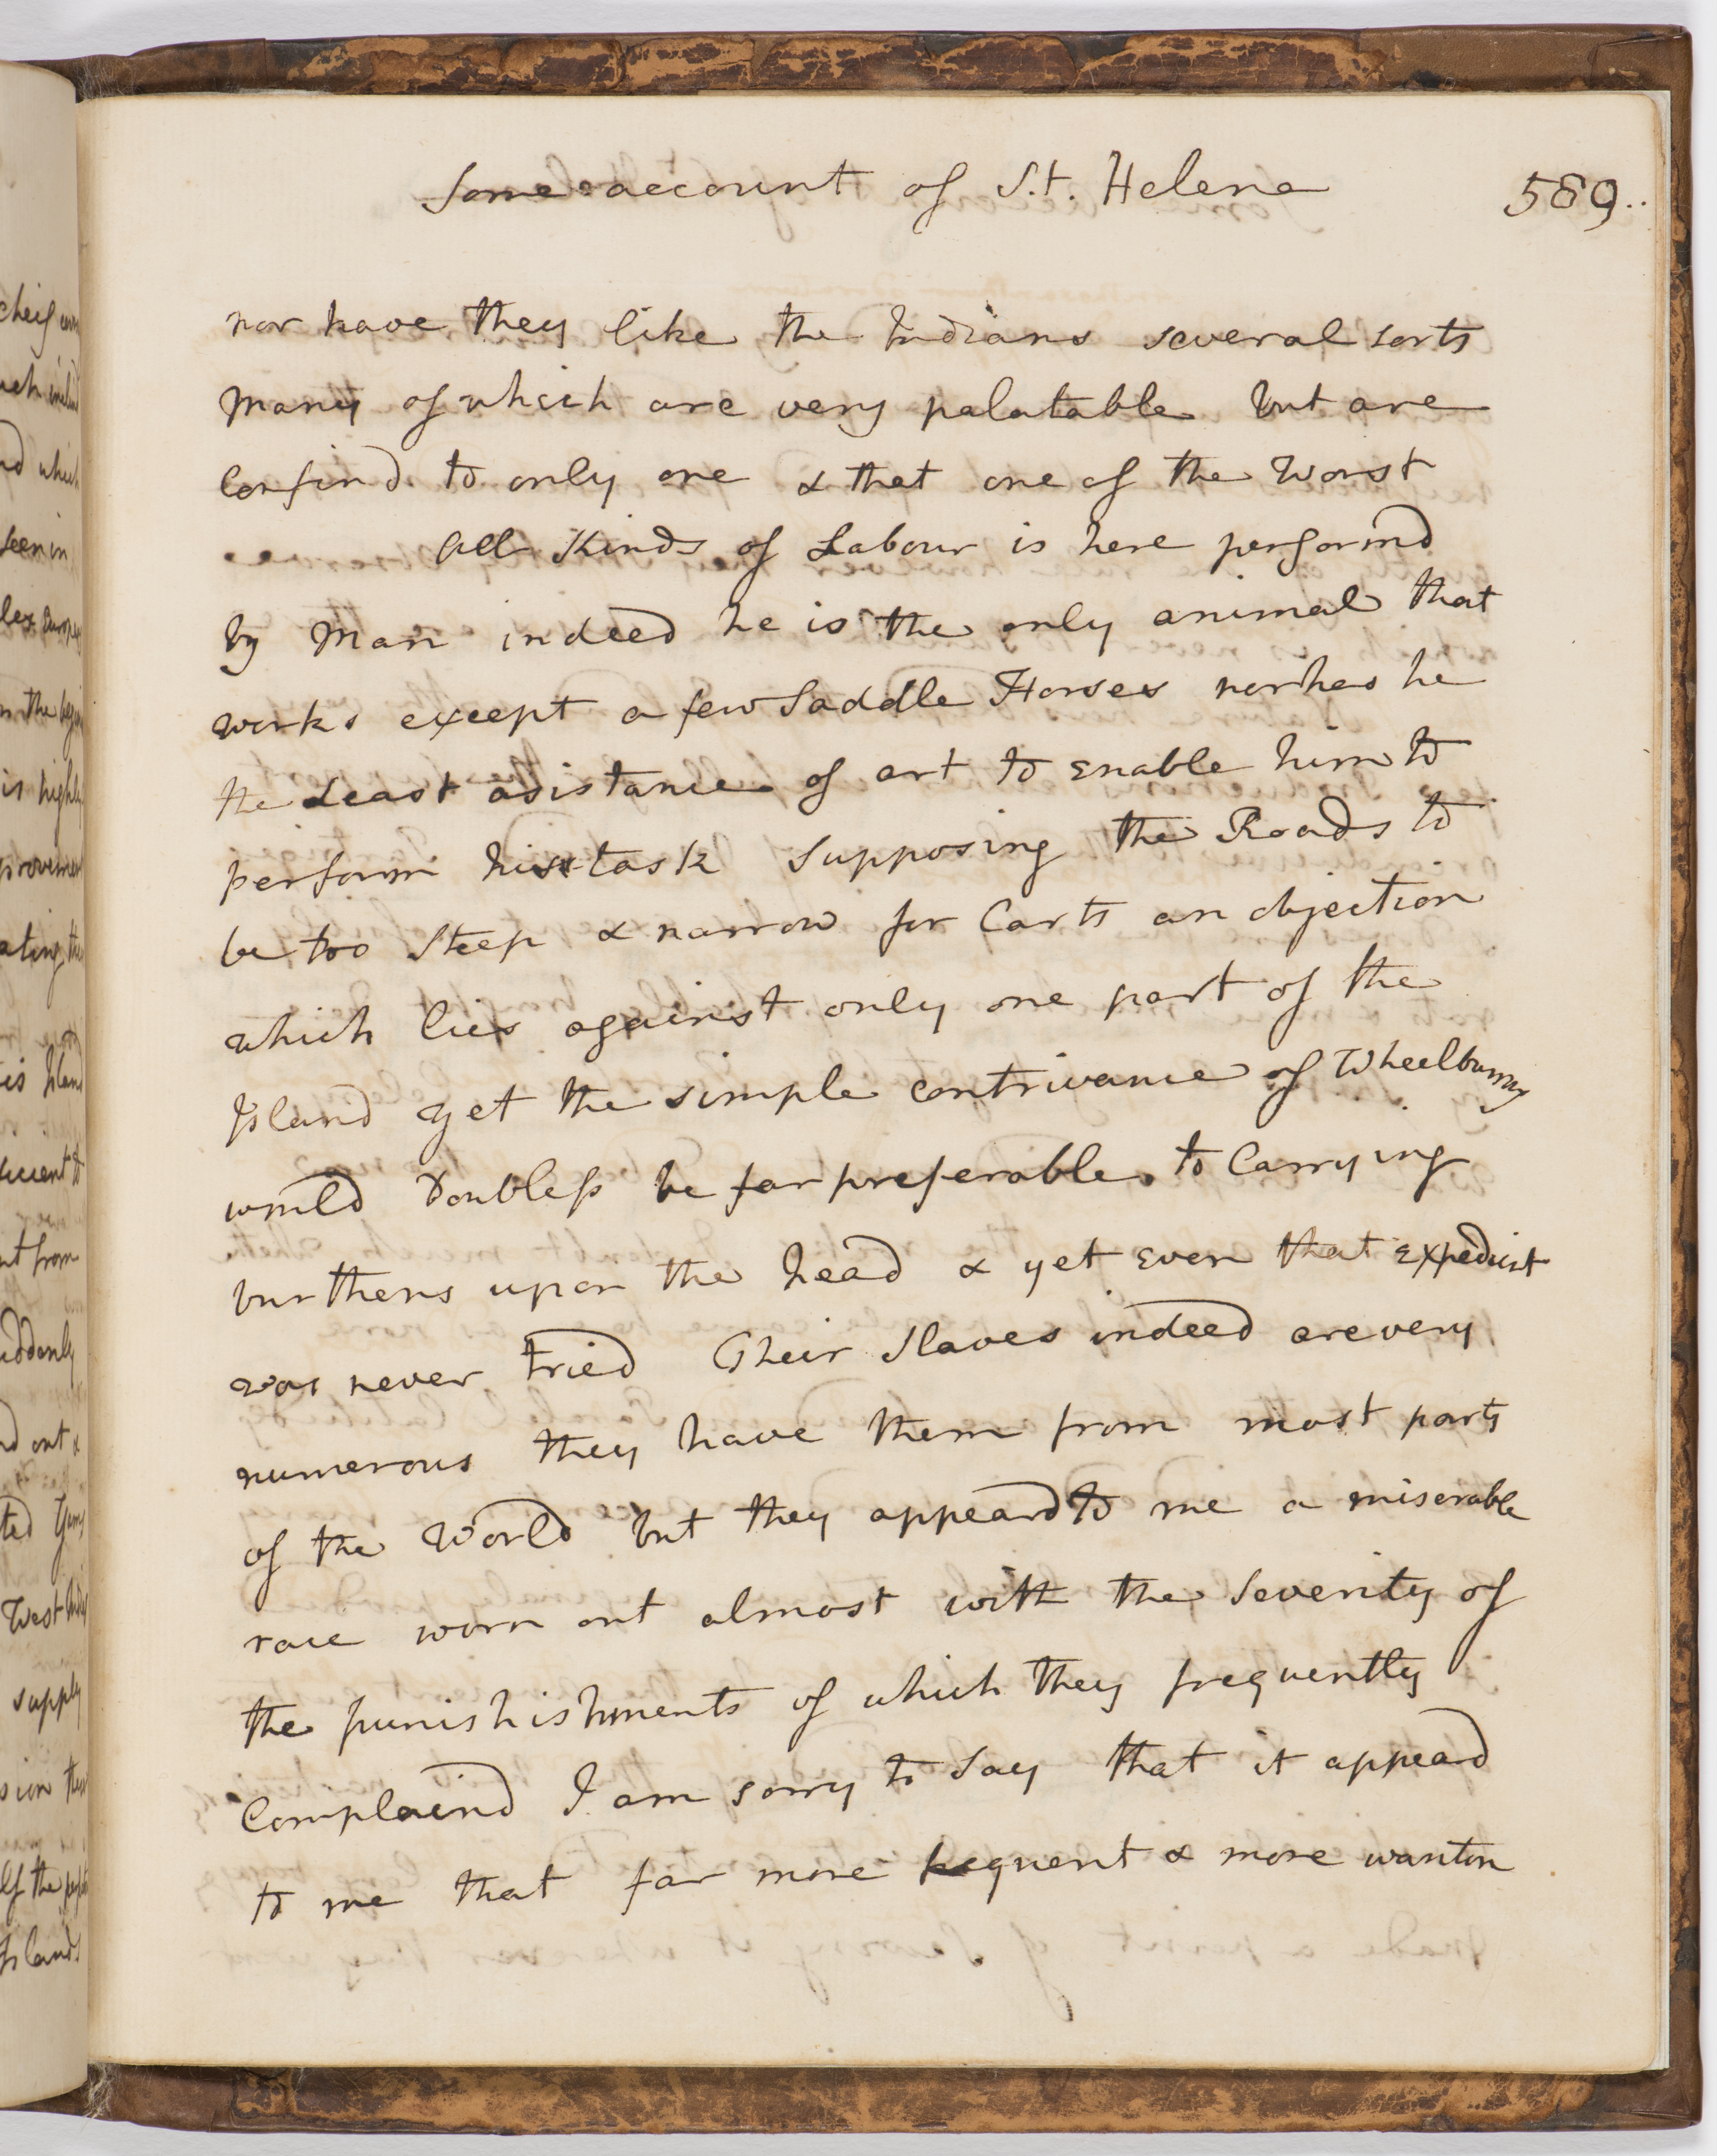 Some account of S.t. Helena 589..
nor have they like the Indians several sorts
many of which are very palatable but are
confind to only one & that one of the worst
All Kinds of Labour is here performd
by Man indeed he is the only animal that
works except a few Saddle Horses nor has he
the Least asistance of art to enable him to
perform his task Supposing the Roads to
be too Steep & narrow for Carts an objection
which lies against only one part of the
Island yet the simple contrivance of Wheelbarrows
would Doubless be far preferable to Carrying
burthens upon the head & yet even that expedient
was never tried Their Slaves indeed are very
numerous they have them from most parts
of the World but they appeard to me a miserable
race worn out almost with the Severity of
the punishishments of which they frequently
complaind I am sorry to say that it appeard
to me that far more frequent & more wanton